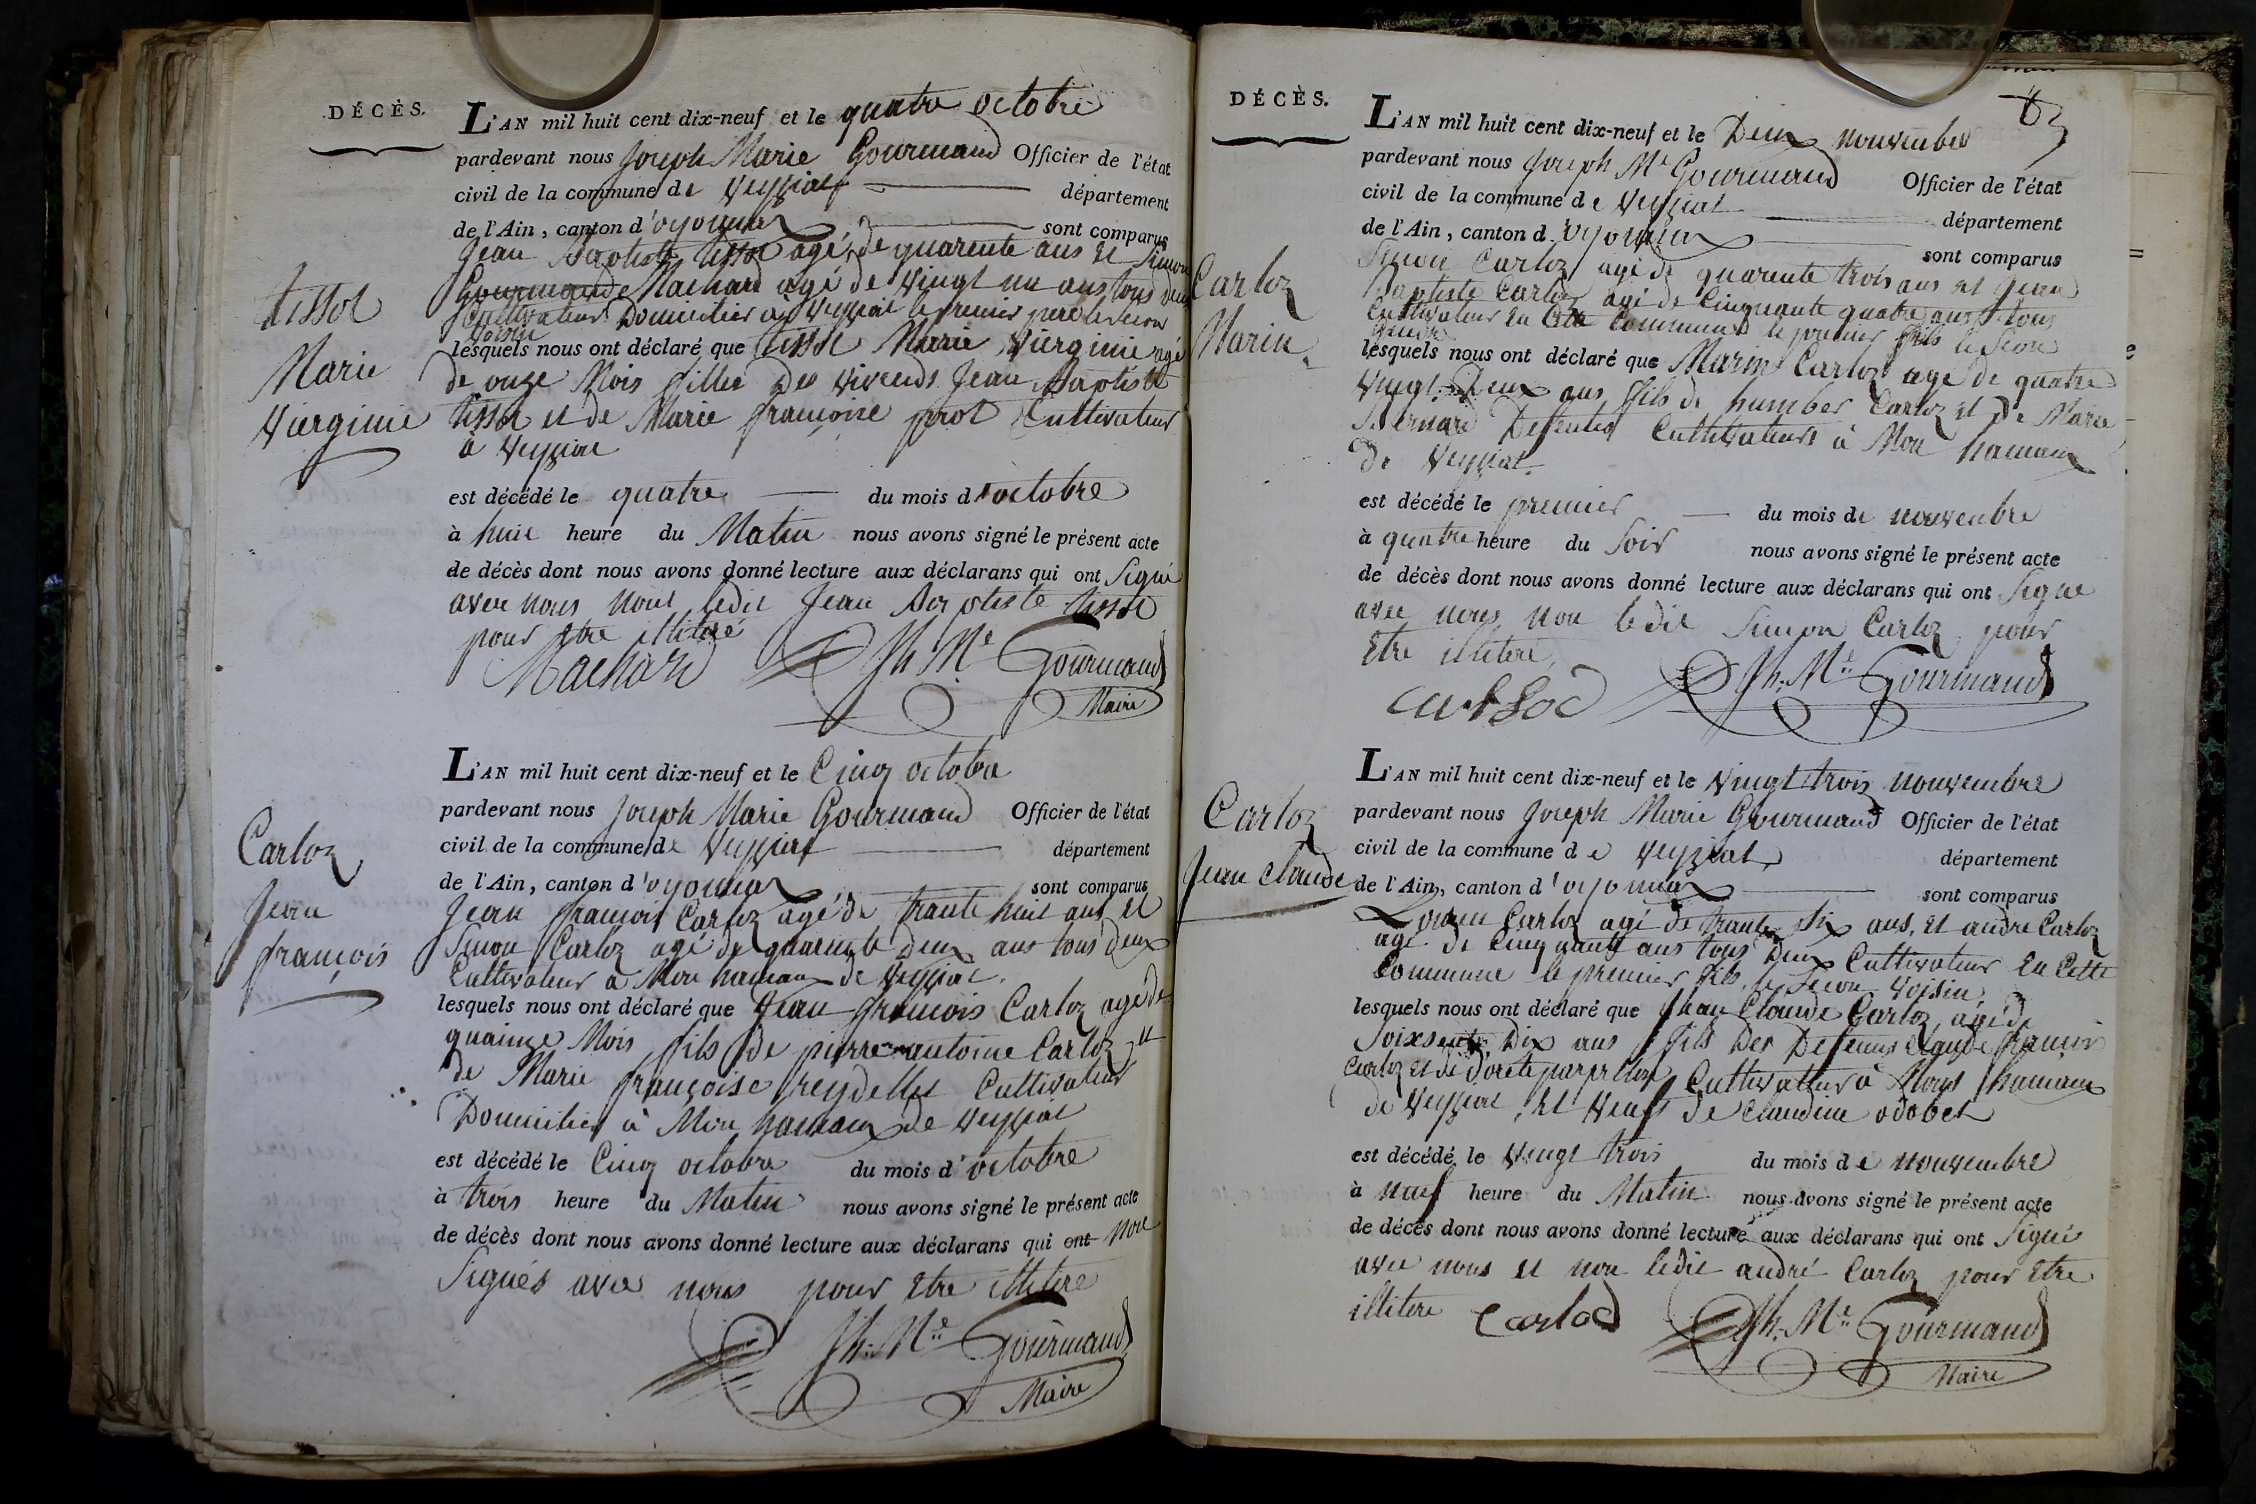 DÉCÈS.
L'AN mil huit cent dix-neuf et le quatre octobre
pardevant nous Joseph Marie Gourmand Officier de l'état
civil de la commune de Veyziat département
de l'Ain, canton d'oyonnax sont comparus
Jean Baptiste tissot agé de quarente ans et Simon
Gourmand Machard agé de Vingt un ans tous deux
Cultivateur Domicilier à Veyziat le premier pere le secon
Voisin
lesquels nous ont déclaré que tissot Marie Vierginie agé
de onze Mois fille des vivends Jean Baptiste
tissot et de Marie françoise prot Cultivateur
à Veyziat
est décédé le quatre du mois d'octobre
à huit heure du Matin nous avons signé le présent acte
de décès dont nous avons donné lecture aux déclarans qui ont Signé
avec nous Nont ledit Jean Baptiste tissot
pour etre illiteré
Machard Jh. Me Gourmand
Maire
tissot
Marie
Vierginie
L'AN mil huit cent dix-neuf et le Cinq octobre
pardevant nous Joseph Marie Gourmand Officier de l'état
civil de la commune de Veyziat département
de l'Ain, canton d'oyonnax sont comparus
Jean françois Carloz agé de trante huit ans et
Simon Carloz agé de quarente deux ans tous deux
Cultivateur à Mon hamaux de Veyziat.
lesquels nous ont déclaré que Jean françois Carloz agé de
quainze Mois fils de pierre antoine Carloz et
de Marie françoise reydellet Cultivateur
Domicilier à Mon hamaux de Veyziat
est décédé le Cinq octobre du mois d'octobre
à trois heure du Matin nous avons signé le présent acte
de décès dont nous avons donné lecture aux déclarans qui ont Non
Signés avec nous pour etre illitere
Jh. Me Gourmand
Maire
Carloz
Jean
françois
DÉCÈS.
63
L'AN mil huit cent dix-neuf et le Deux nouvember
pardevant nous Joseph Me Gourmand Officier de l'état
civil de la commune de Veyziat département
de l'Ain, canton d'oyonnax sont comparus
Simon Carloz agé de quarente trois ans et Jean
Baptiste Carloz agé de Cinquante quatre ans tous
Cultivateur en Cette Commune le premier fils le secon
lesquels nous ont déclaré que Marin Carloz age de quatre
Vingt Deux ans fils de humber Carloz et de Marie
Bernard Defentes Cultivateurs à Mon hamaux
de Veyziat
est décédé le premier du mois de nouvenbre
à quatre heure du Soir nous avons signé le présent acte
de décès dont nous avons donné lecture aux déclarans qui ont Signe
avec nous non ledit Simon Carloz pour
etre illitere
Jh. Me Gourmand
Carloz
Marin
L'AN mil huit cent dix-neuf et le Vingt trois nouvembre
pardevant nous Joseph Marie Gourmand Officier de l'état
civil de la commune de Veyziat département
de l'Ain, canton d'oyonnax sont comparus
Carloz agé de trante Six ans, et andré Carloz
agé de Cinquante ans tous Deux Cultivateur en Cette
Commune le premier fils, le Secon Voisin,
lesquels nous ont déclaré que Jean Claude Carloz, agé de
Soixsente Dix ans fils Des Defenus Claude françois
Carloz et de Cultivateur à Mons hamaux
de Veyziat, et Veuf de Claudine odobet
est décédé le Vingt trois du mois de nouvembre
à neuf heure du Matin nous avons signé le présent acte
de décès dont nous avons donné lecture aux déclarans qui ont Signé
avec nous et non ledit andré Carloz pour etre
illitere carlod Jh. Me Gourmand
Maire
Carloz
Jean Claude